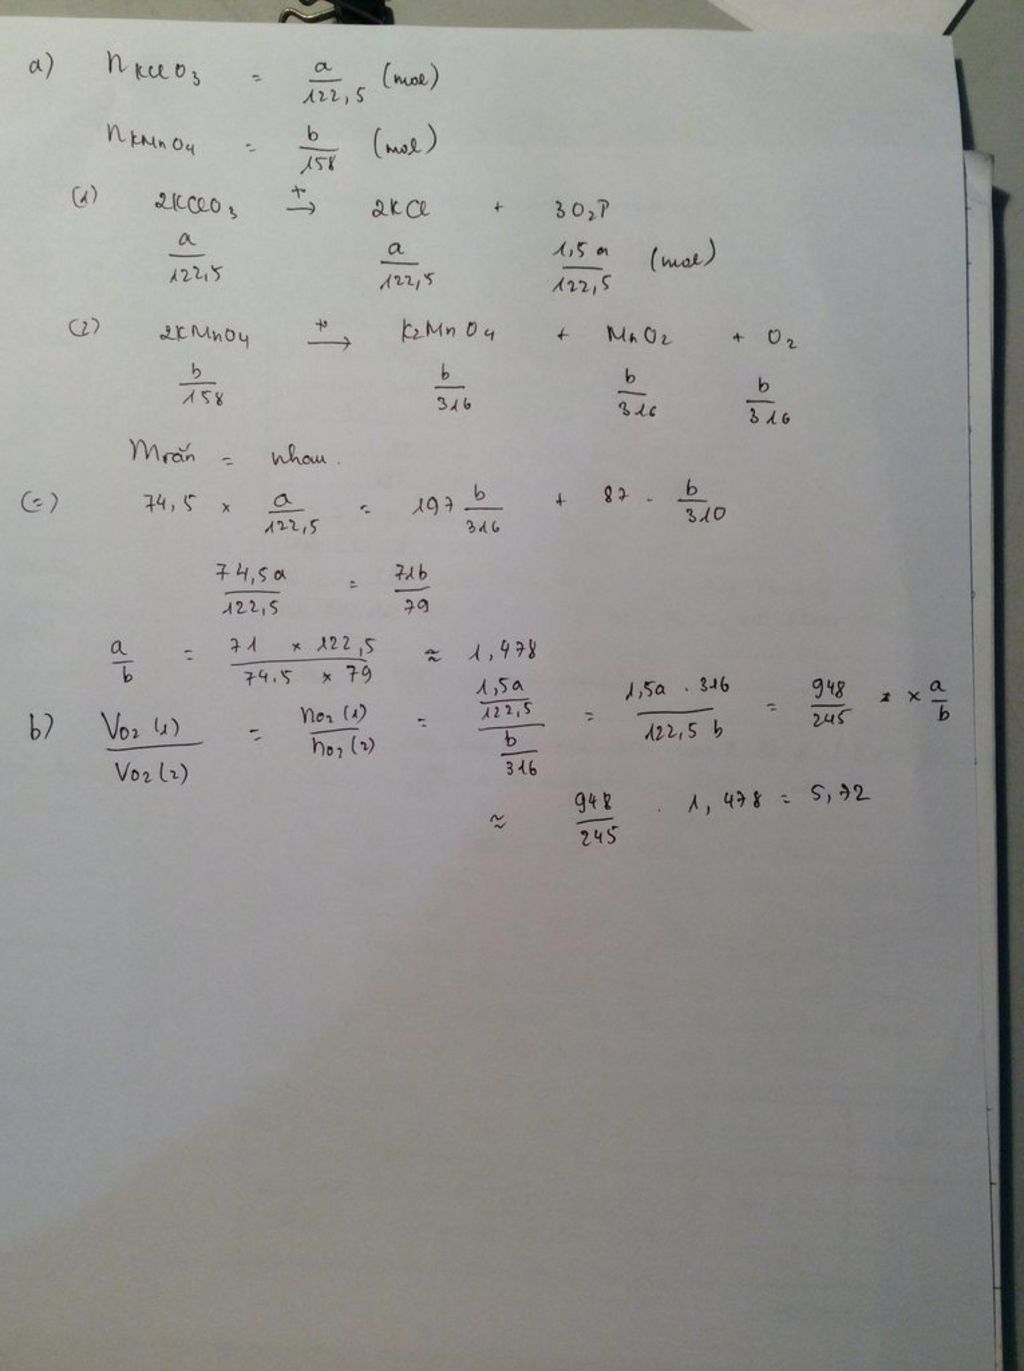 a) nKClO3 = a/122,5 (mol)
nKMnO4 = b/158 (mol)
(1) 2KClO3 t°→ 2KCl + 3O2↑
a/122,5 a/122,5 1,5a/122,5 (mol)
(2) 2KMnO4 t°→ K2MnO4 + MnO2 + O2
b/158 b/316 b/316 b/316
Mrắn = nhau.
(=) 74,5 × a/122,5 = 197 b/316 + 87 . b/310
74,5a/122,5 = 71b/79
a/b = 71 × 122,5/74,5 × 79 ≈ 1,478
b) VO2 (1)/VO2 (2) = nO2 (1)/nO2 (2) = 1,5a/122,5/b/316 = 1,5a . 316/122,5 b = 948/245 × a/b
≈ 948/245 . 1,478 = 5,72